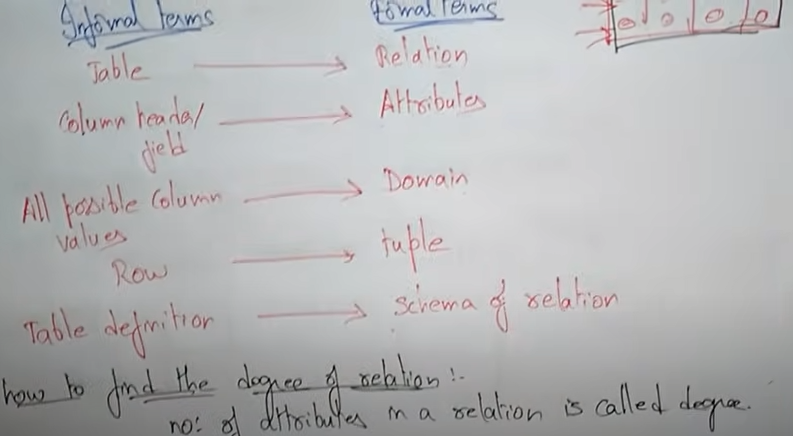 Informal terms Formal Terms
Table → Relation
Column header/ → Attributes
field
All possible Column → Domain
values
Row → tuple
Table definition → Schema of relation
how to find the degree of relation :-
no: of attributes in a relation is called degree.